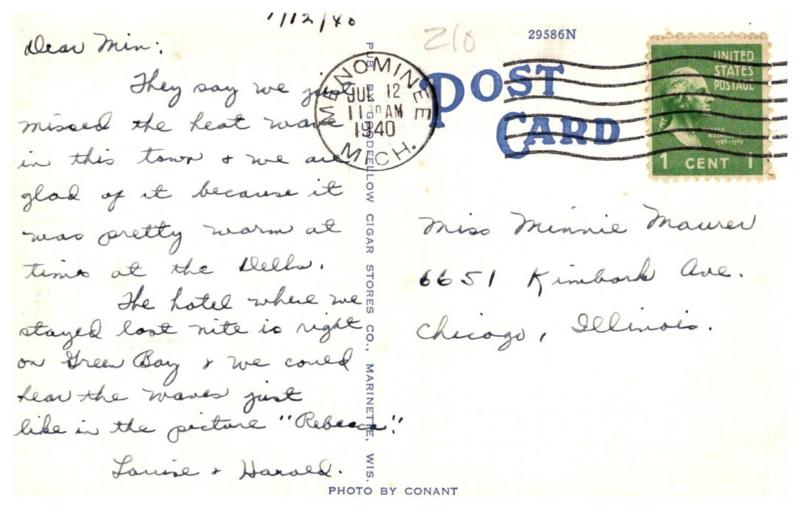 7/12/40
Dear Min:
They say we just
missed the heat wave
in this town & we are
glad of it because it
was pretty warm at
times at the Dells.
The hotel where we
stayed last nite is right
on Green Bay & we could
hear the waves just
like in the picture "Rebecca."
Louise & Harold.
PUB. BY GOODFELLOW CIGAR STORES CO., MARINETTE, WIS.
PHOTO BY CONANT
210
29586N
POST
CARD
MENOMINEE
JUL 12
11 AM
1940
MICH.
UNITED
STATES
POSTAGE
1 CENT 1
Miss Minnie Maurer
6651 Kimbark Ave.
Chicago, Illinois.